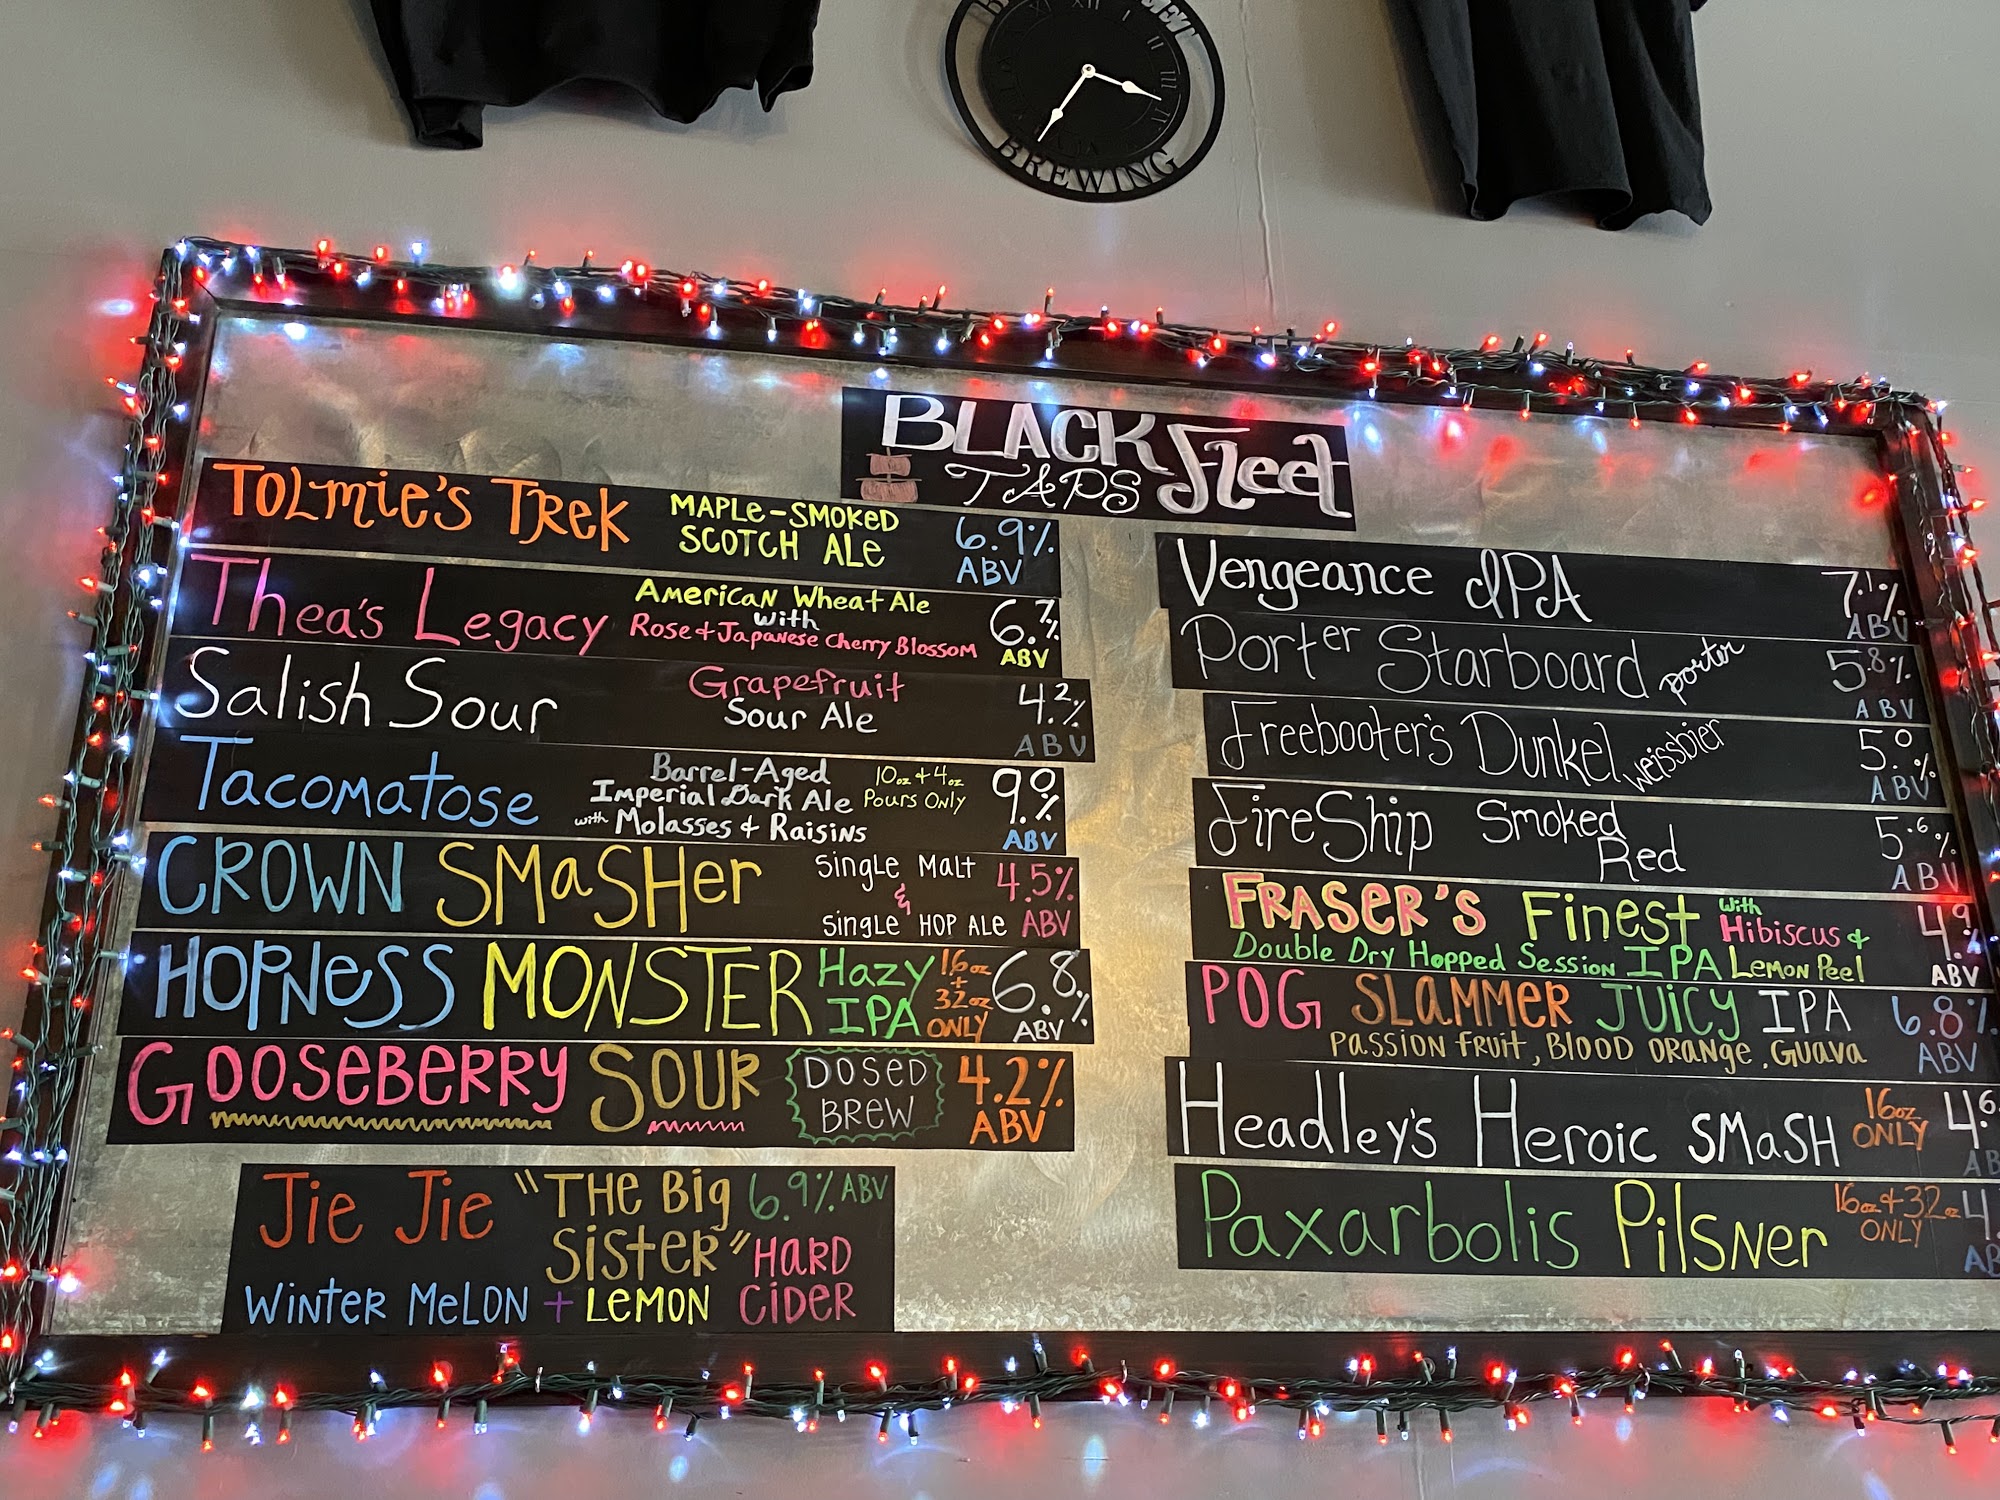 BREWING
BLACK Fleet
TAPS
Tolmie's Trek
MAPLE-SMOKED
SCOTCH ALE
6.9%
ABV
Thea's Legacy
American Wheat Ale
with
Rose + Japanese Cherry Blossom
ABV
Salish Sour
Grapefruit
Sour Ale
4.2%
ABV
Tacomatose
Barrel-Aged
Imperial Dark Ale
with Molasses & Raisins
10oz + 4oz
Pours Only
9.0%
ABV
CROWN SMaSHer
Single Malt
&
Single HOP Ale
4.5%
ABV
HOPNeSS MONSTER
Hazy
IPA
16oz
+
32oz
ONLY
6.8%
ABV
GOOSEBERRY SOUR
DOSED
BREW
4.2%
ABV
Jie Jie "THE Big
Sister"
6.9% ABV
HARD
CIDER
Winter MeLON + LEMON
Vengeance IPA
7.1%
ABV
Porter Starboard porter
5.8%
ABV
Freebooter's Dunkel weissbier
5.0%
ABV
FireShip Smoked
Red
5.6%
ABV
FRASER'S Finest with
Hibiscus &
Double Dry Hopped Session IPA Lemon Peel
4.9%
ABV
POG SLAMMER JUICY IPA
PASSION FRUIT, BLOOD ORANGE, GUAVA
6.8%
ABV
Headley's Heroic SMaSH
16oz
ONLY
4.6
AB
Paxarbolis Pilsner
16oz + 32oz
ONLY
4.
AB